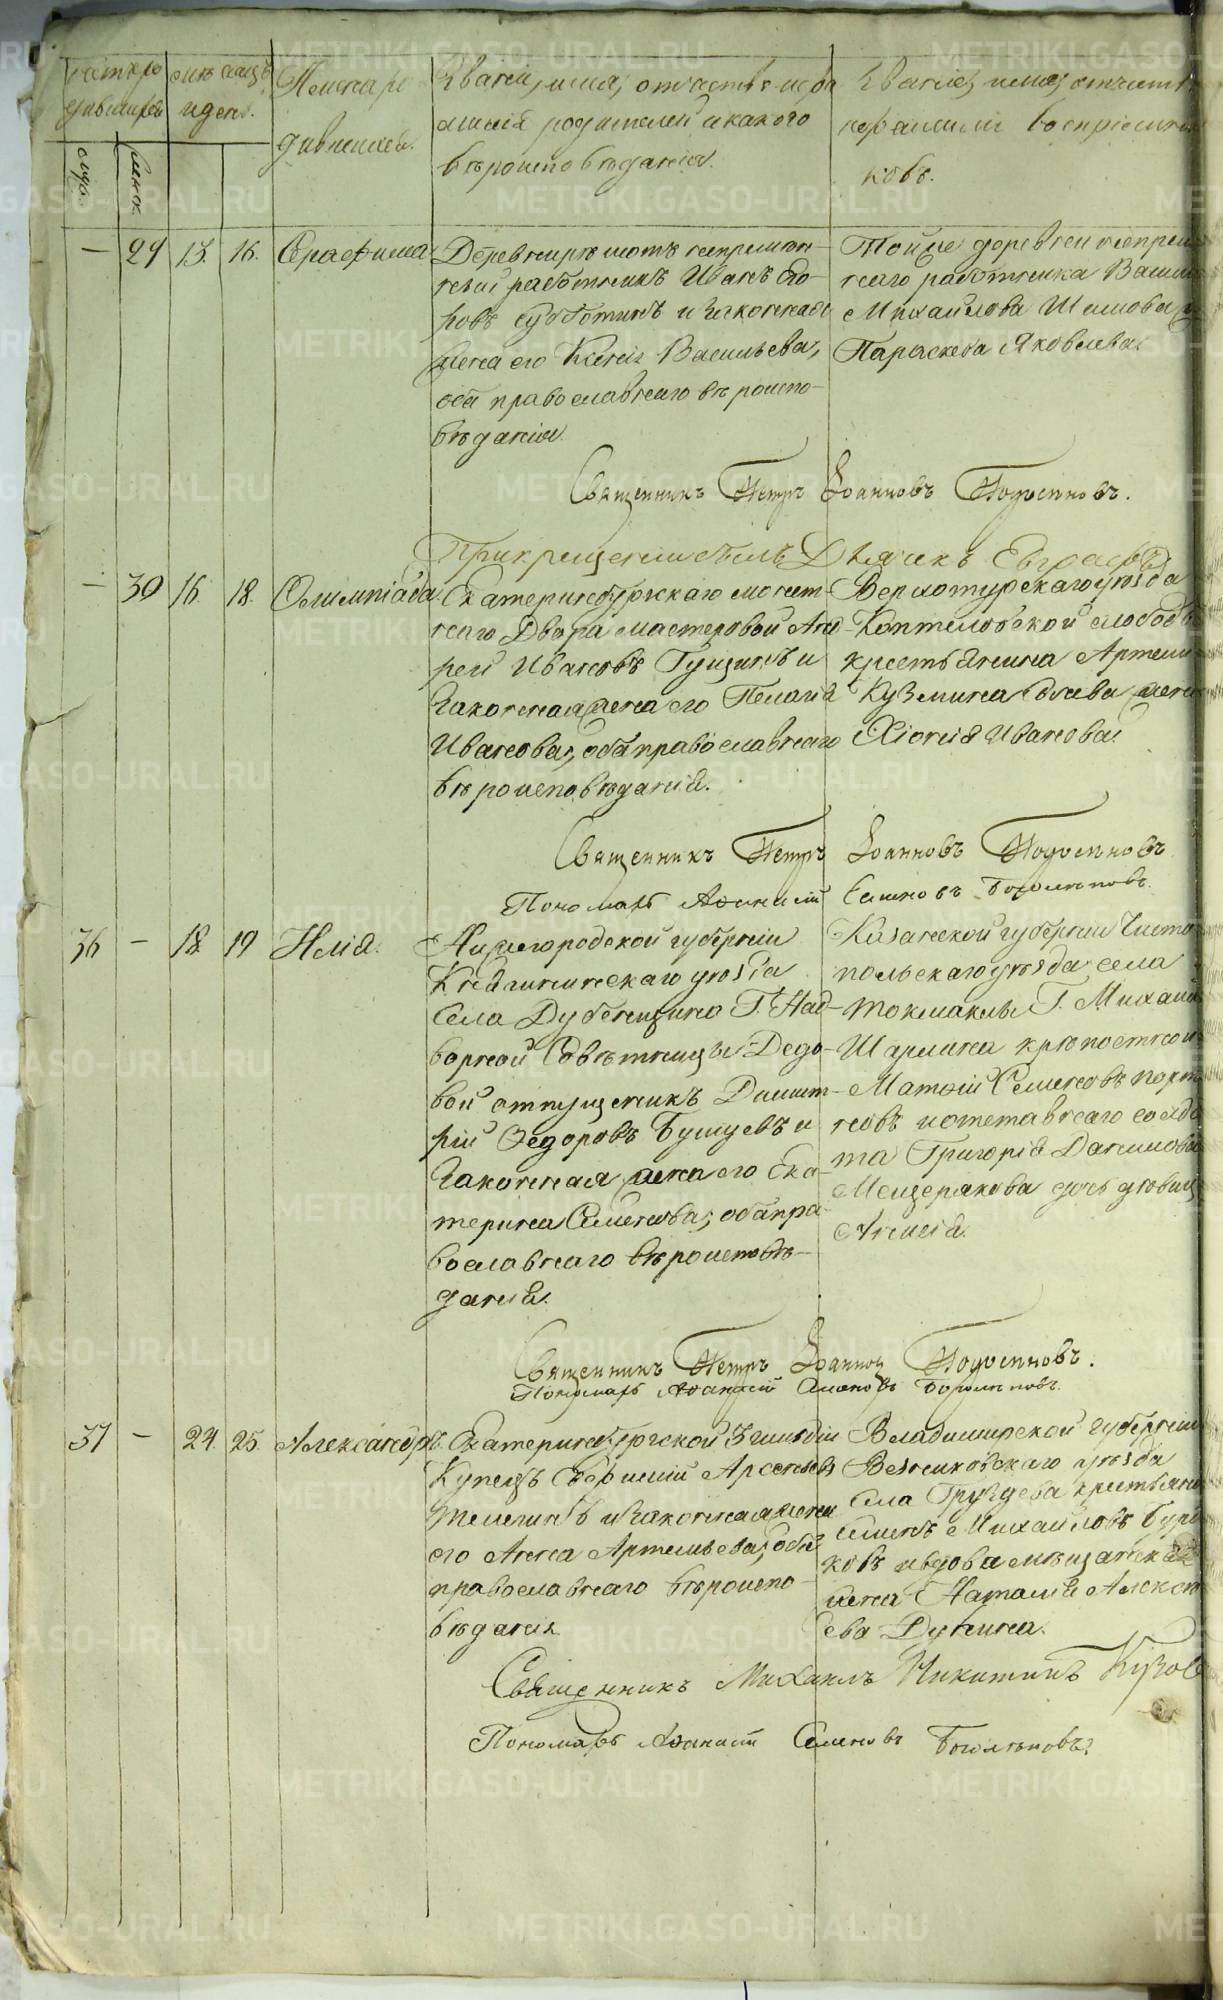 Счетъ ро
дившихся
Мѣсяцъ
и день.
Имена ро
дившихся.
Званіе, имя, отчество и фа
милія родителей и какого
вѣроисповѣданія.
Званіе, имя, отчест
и фамилія воспріемни
ковъ.
муж.
женск.
— 29 13. 16. Серафима
Деревни
работникъ Иванъ
Субботинъ и законная
жена его Васильева,
оба православнаго вѣроиспо-
вѣданія.
Тойже деревни
работника
Михайлова и
Параскева Яковлева.
Священникъ Петръ Іоанновъ
При крещеніи былъ Дьячекъ
— 30 16. 18. Олимпіада
Екатеринбургскаго монет-
наго Двора мастеровой Анд-
рей Ивановъ Гущинъ и
законная жена его Пелагія
Иванова, оба православнаго
вѣроисповѣданія.
Верхотурскаго уѣзда
Коптеловской слободы
крестьянина Артеми
Кузмина жена
Хіонія Иванова.
Священникъ Петръ Іоанновъ
Пономарь Афанасій Семеновъ Боголѣповъ.
36 — 18 19 Илія.
Нижегородской губерніи
Княгининскаго уѣзда
Села Дубенщина Г. Над-
ворной Совѣтницы Дедо-
вой отпущеникъ Димит-
рій Федоровъ Бушуевъ и
Законная жена его Ека-
терина Семенова, оба пра-
вославнаго вѣроисповѣ-
данія.
Казанской губерніи Чисто
польскаго уѣзда села
Токмаклы Г. Михаил
крѣпостной
Матфій Семеновъ
и отставнаго солда
та Григорія Данилова
Мещерякова дочь дѣвица
Анисія.
Священникъ Петръ Іоанновъ
Пономарь Афанасій Семеновъ Боголѣповъ.
37 — 24. 25. Александръ.
Екатеринбургской 3 гильдіи
Купецъ Арсеньевъ
Телегинъ и законная жена
его Анна Артемьева, оба
православнаго вѣроиспо-
вѣданія.
Владимирской губерніи
Вязниковскаго уѣзда
села Груздева крестьяни
Семенъ Михайловъ
ковъ и вдова мѣщанская
жена Наталія Алексѣ
ева
Священникъ Михаилъ Никитинъ
Пономарь Афанасій Семеновъ Боголѣповъ.
METRIKI.GASO-URAL.RU